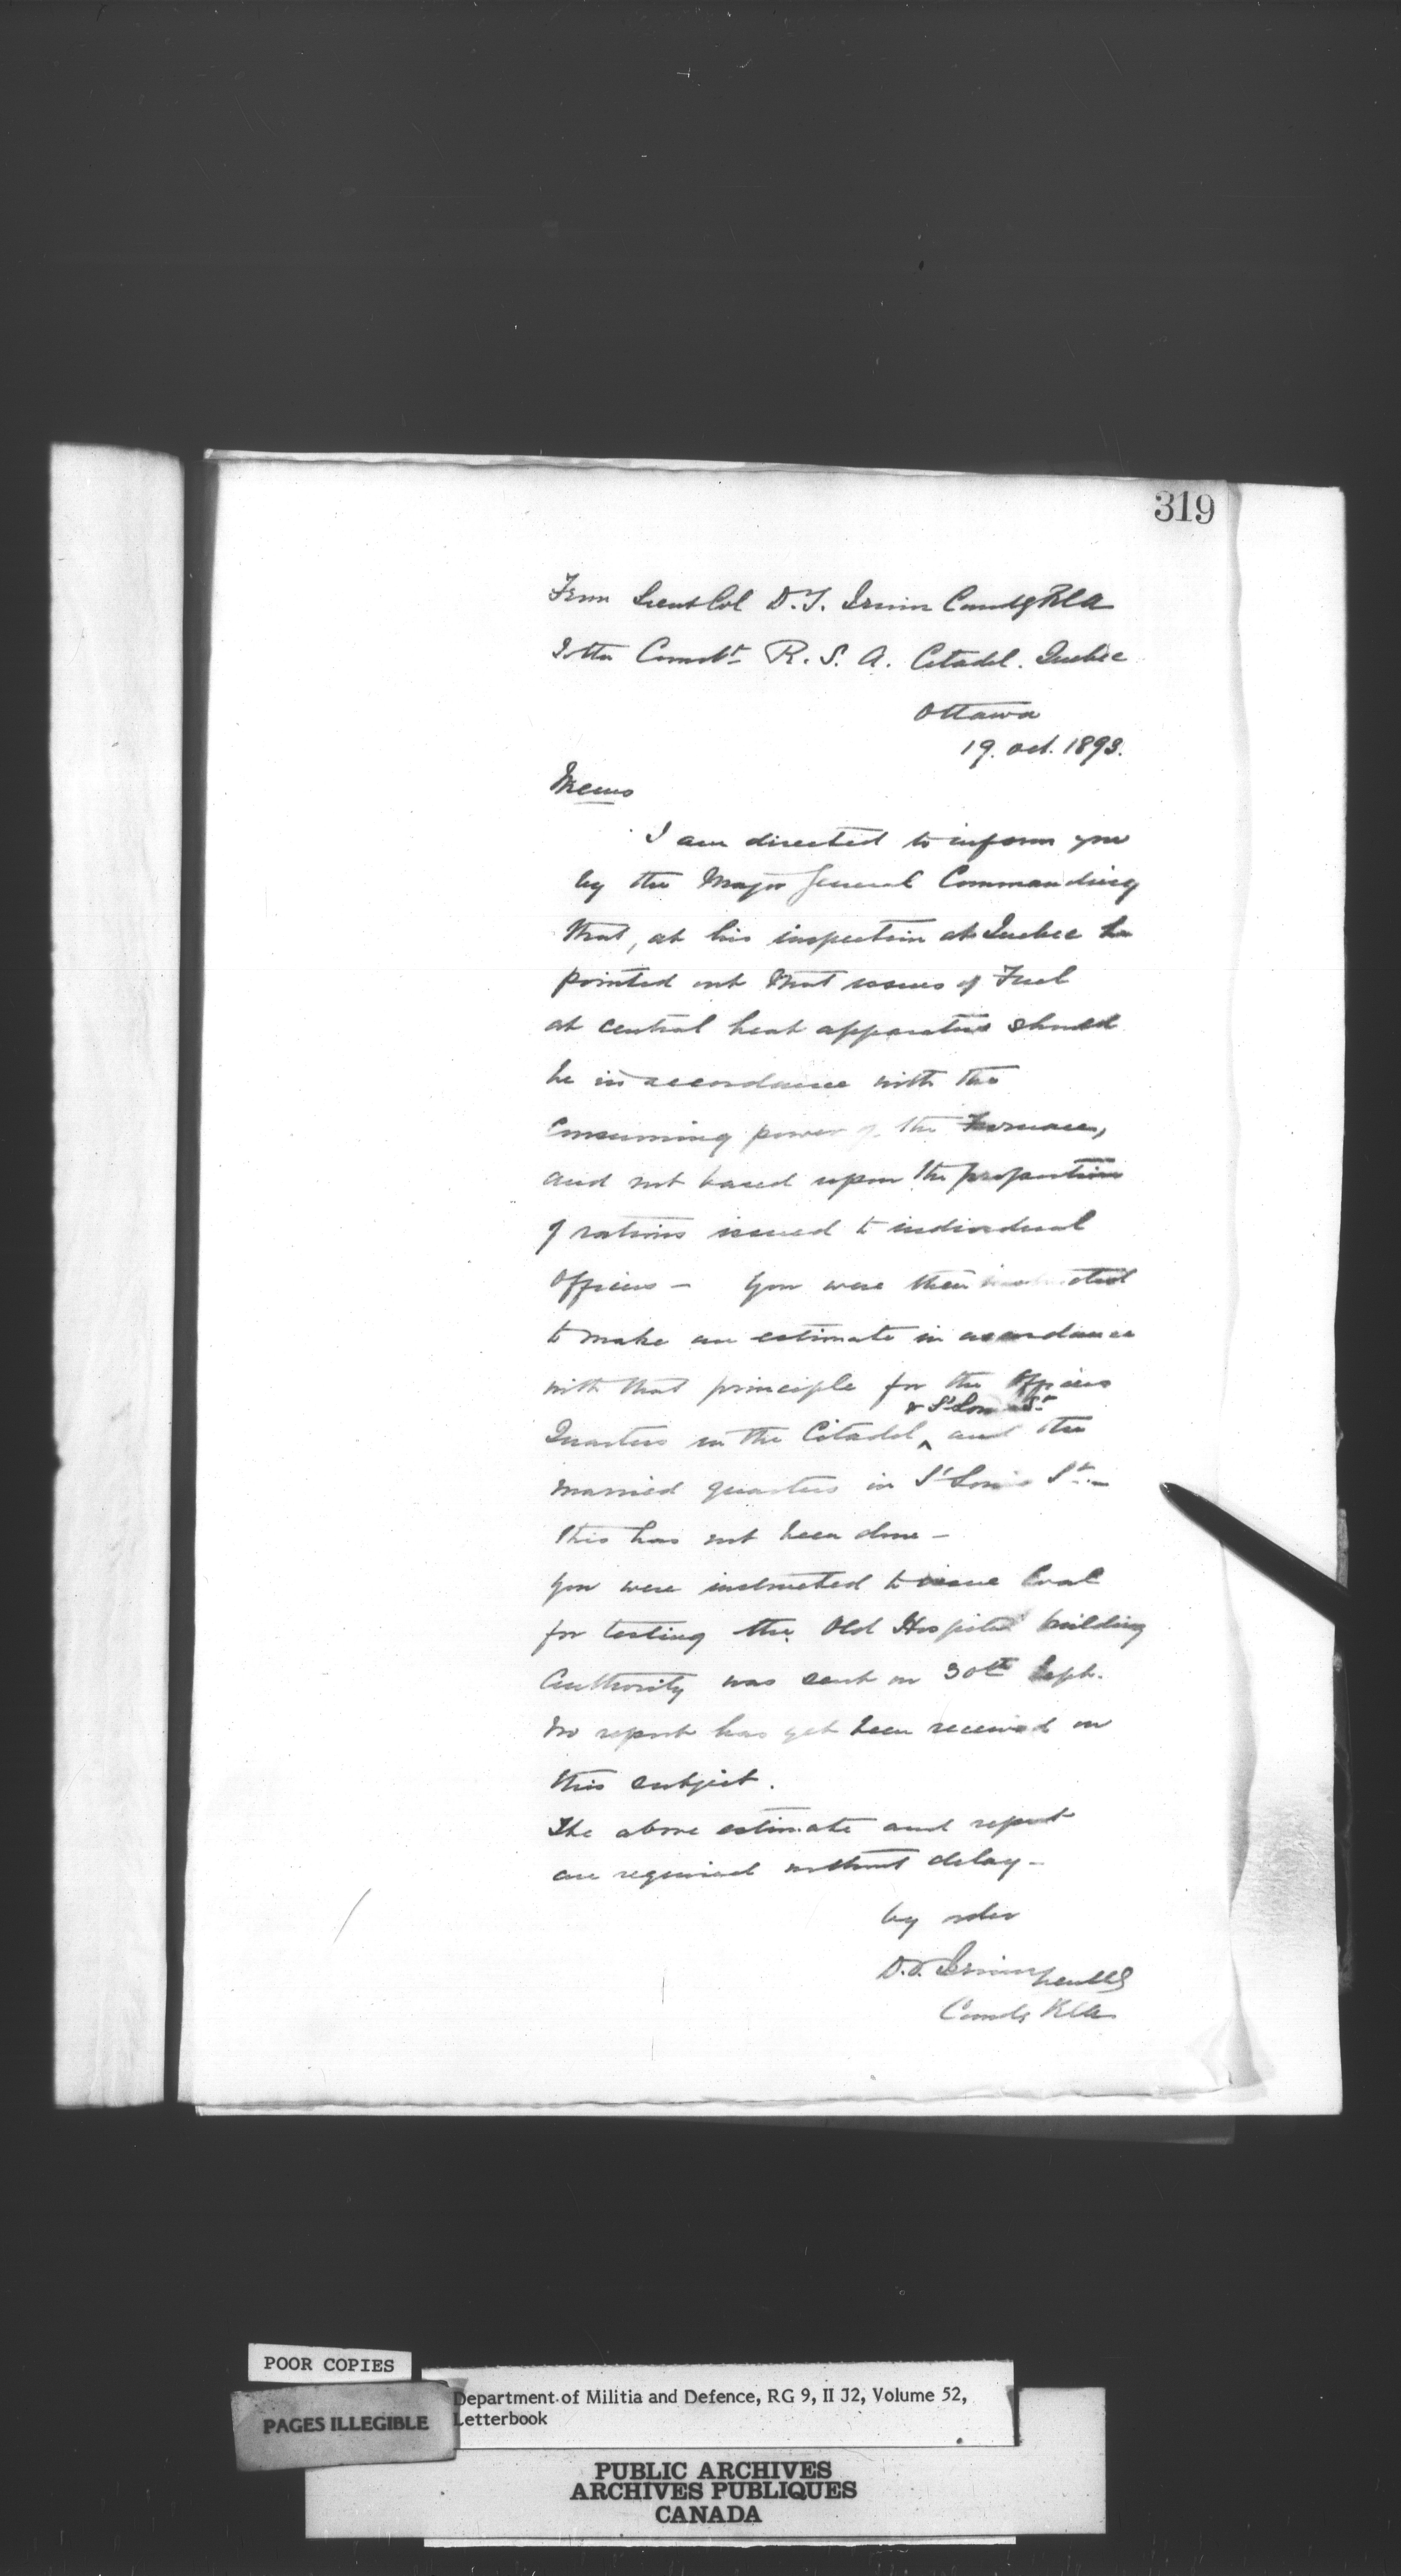 319
From Lieut Col D. T. Irwin Comdg RCA
To the Comdt R. S. A. Citadel. Quebec
Ottawa
19. Oct. 1893.
Memo
I am directed to inform you
by the Major General Commanding
that, at his inspection at Quebec he
pointed out that issues of Fuel
at central heat apparatus should
be in accordance with the
Consuming power of the Furnaces,
and not based upon the proportion
of rations issued to individual
Officers — You were then instructed
to make an estimate in accordance
with that principle for the Officers
& St Louis St
Quarters in the Citadel, ^ and the
married quarters in St Louis St. —
this has not been done —
You were instructed to issue Coal
for testing the Old Hospital building
Authority was sent on 30th Sept.
No report has yet been received on
this subject.
The above estimate and report
are required without delay —
by order
D. T. Irwin Lieut Col
Comdg RCA
POOR COPIES
PAGES ILLEGIBLE
Department of Militia and Defence, RG 9, II J2, Volume 52,
Letterbook
PUBLIC ARCHIVES
ARCHIVES PUBLIQUES
CANADA